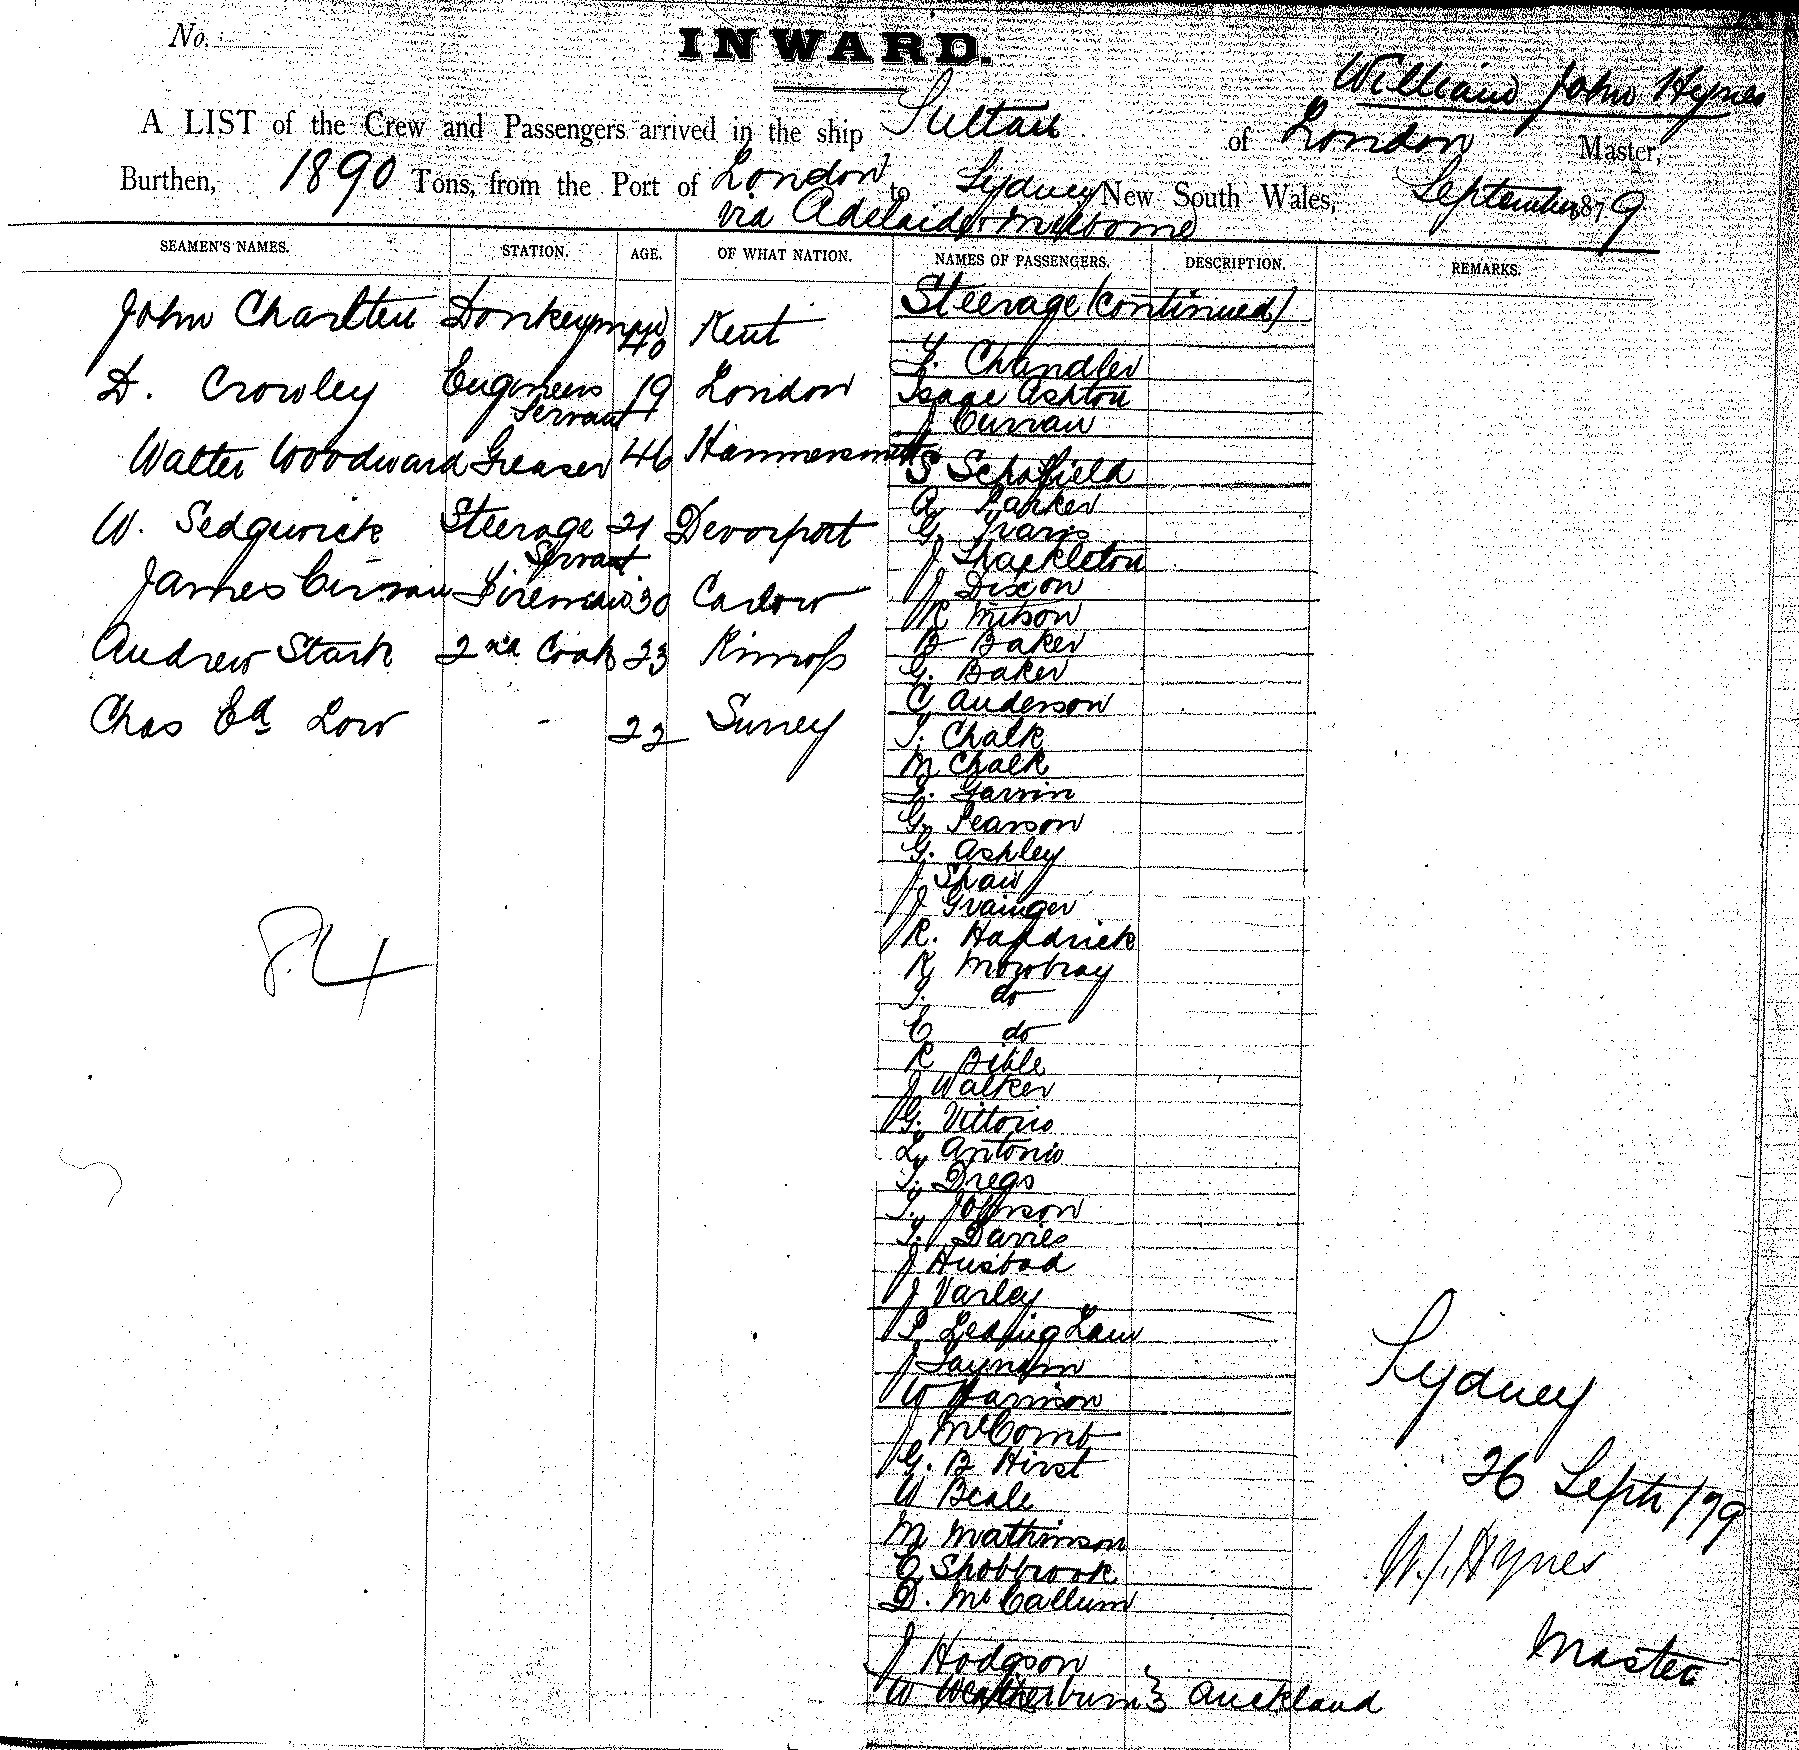 No.
INWARD.
William John Hynes
A LIST of the Crew and Passengers arrived in the ship Sultan of London Master,
Burthen, 1890 Tons, from the Port of London to Sydney New South Wales, September 1879
via Adelaide & Melborne
SEAMEN'S NAMES. STATION. AGE. OF WHAT NATION. NAMES OF PASSENGERS. DESCRIPTION. REMARKS.
John Charlten Donkeyman 40 Kent
D. Crowley Engineers Servant 19 London
Walter Woodward Greaser 46 Hammersmith
W. Sedgwick Steerage Servant 21 Devonport
James Fireman 30 Carlow
Andrew Stark 2nd Cook 23 Kinross
Chas Ed Low - 22 Surrey
Steerage (continued)
F. Chandler
Isaac Ashton
J Curran
S Schofield
A Parker
G Travis
J Shackleton
J Dixon
R Mitson
B Baker
G. Baker
C Anderson
T. Chalk
M Chalk
Garvin
G. Pearson
G. Ashley
J Shaw
J Grainger
R. Handrick
R Mowbray
T. do
E do
R Bible
J Walker
G. Vittorio
L. Antonio
T. Drego
T. Johnson
T. Davies
J Husbad
J Varley
P Leaping Law
J
W Harrison
J McComb
G. B Hirst
W Beale
M Mathinson
E Shobbrook
D. McCallum
J Hodgson
W Weatherburn } Auckland
Sydney
26 Septr /79
W. J. Hynes
Master